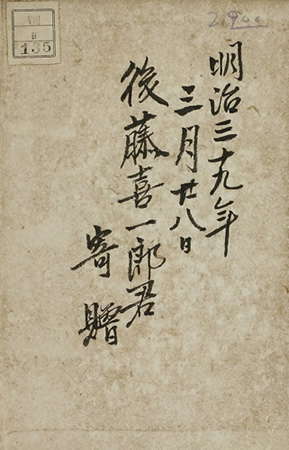 明治三十九年
三月廿八日
後藤喜一郎君
寄贈
VII
B
135